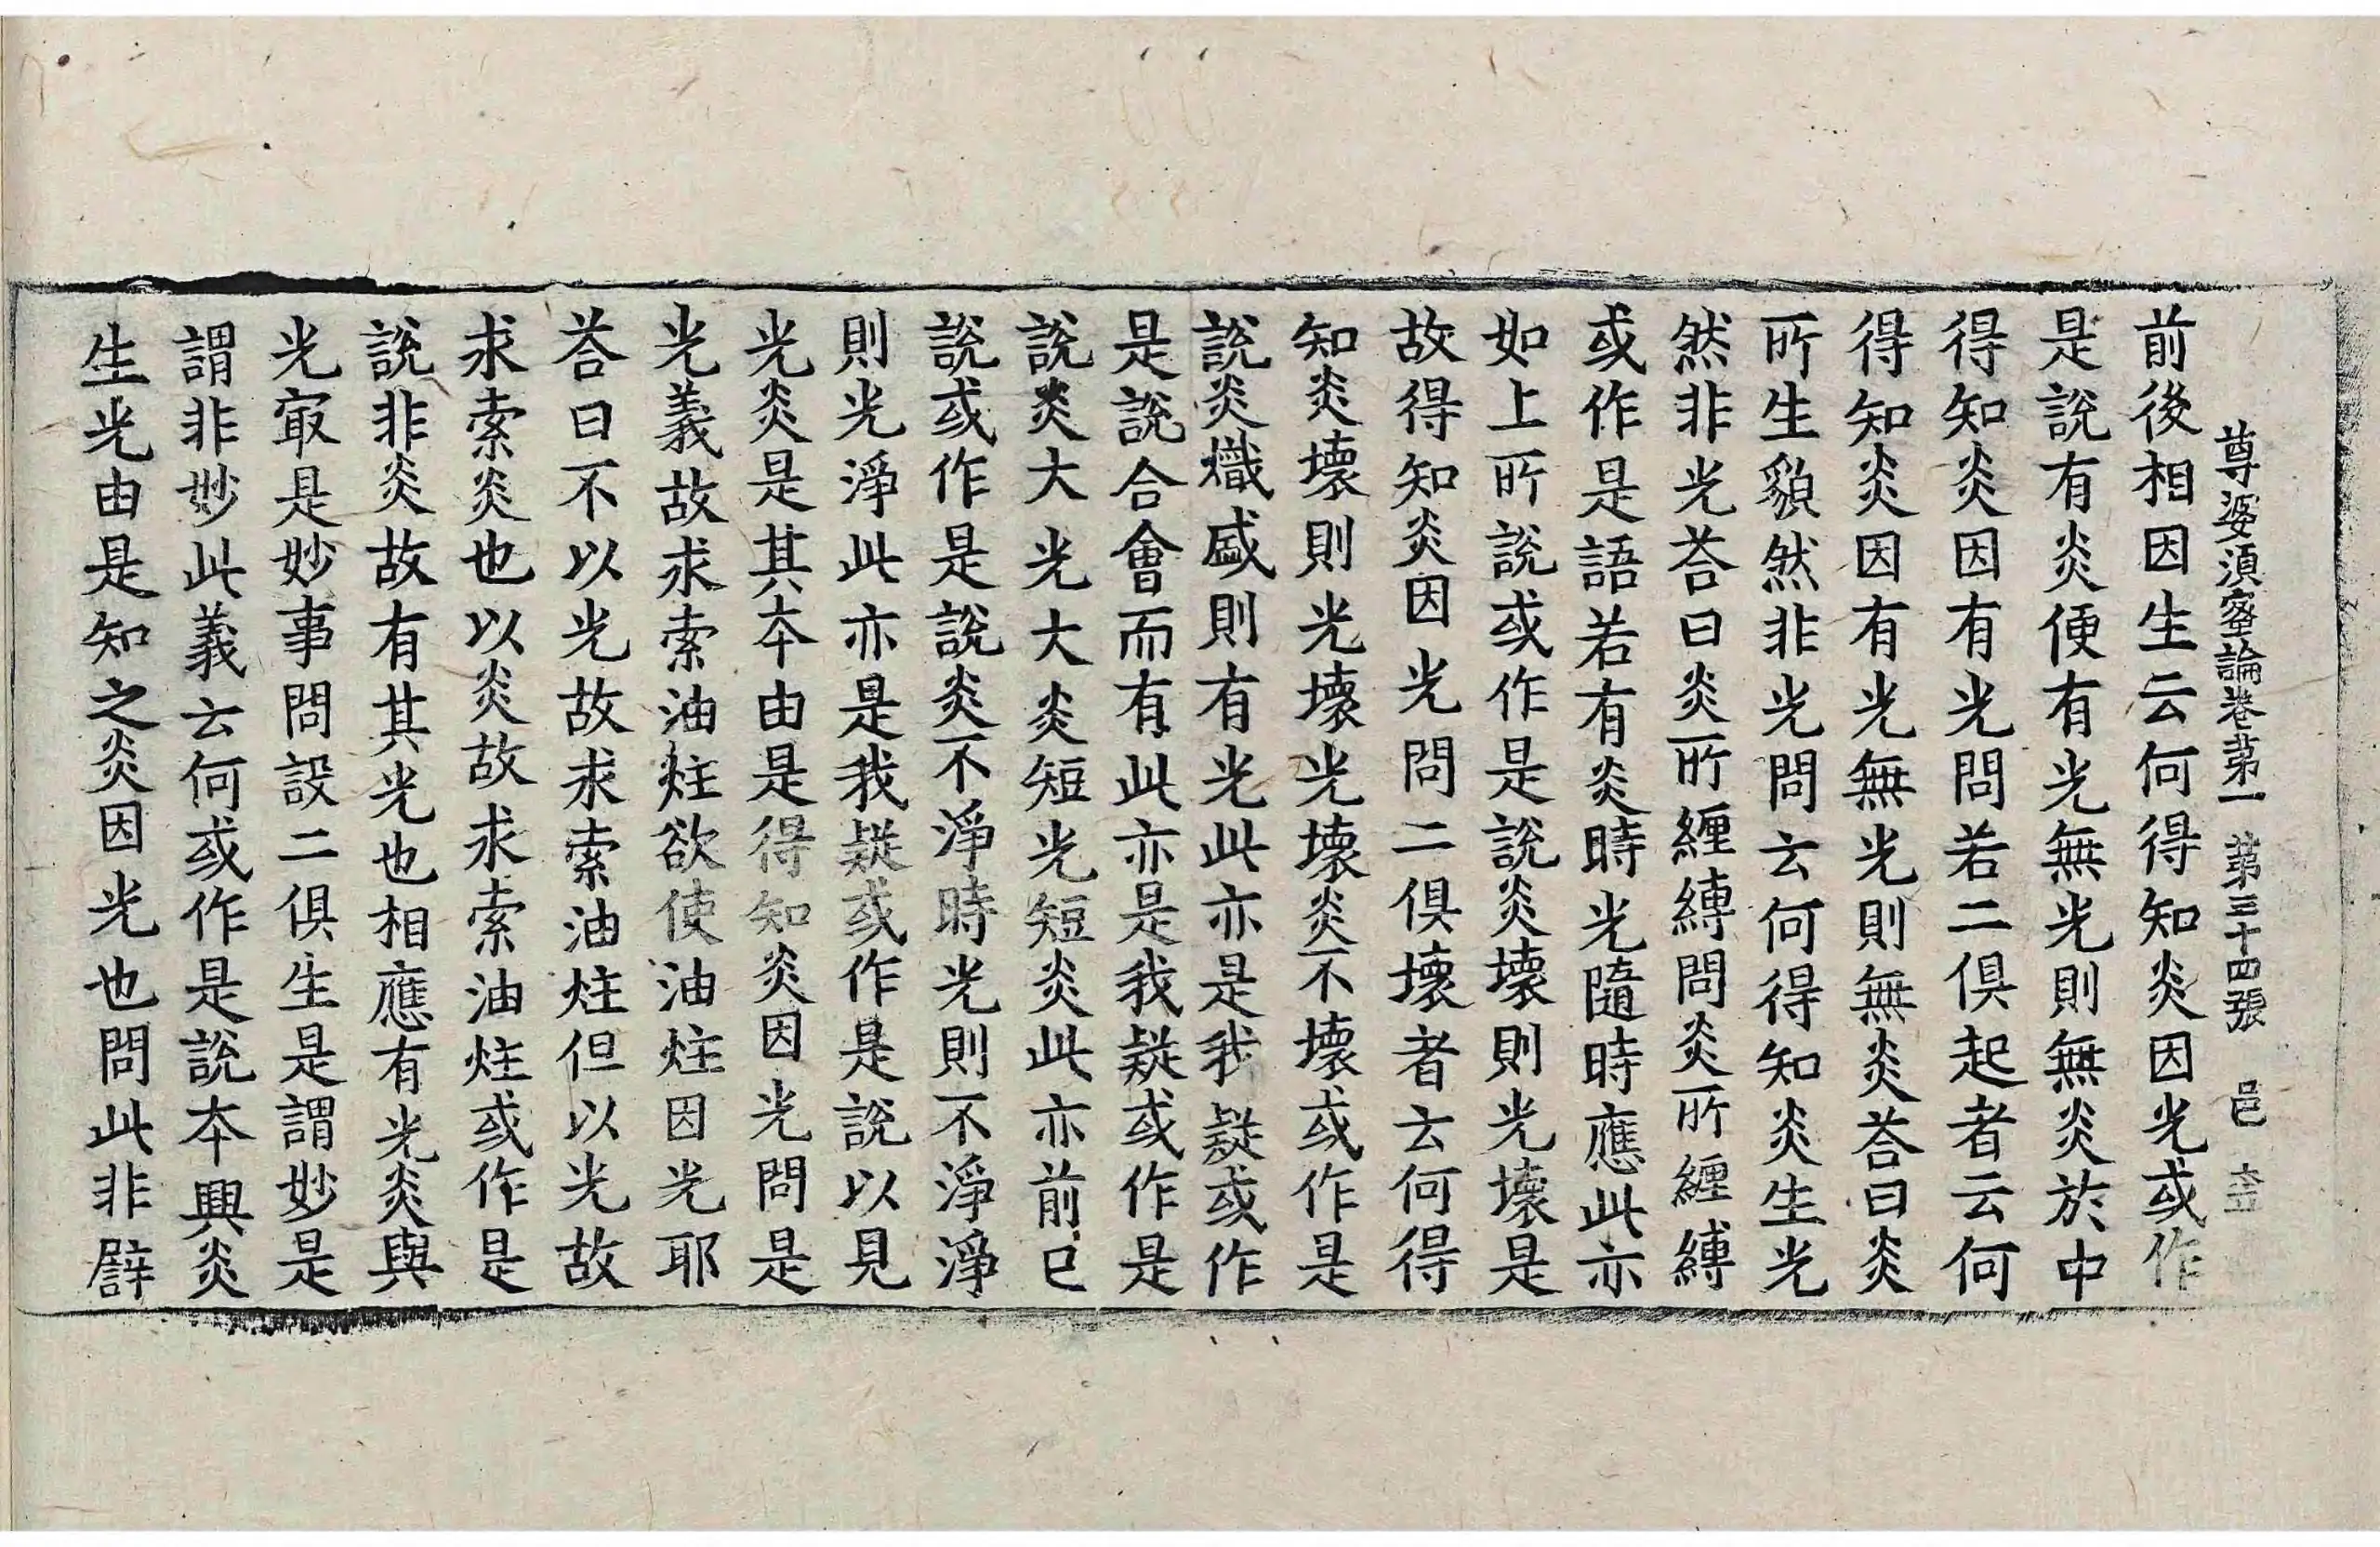 尊婆湏蜜論卷苐一 苐三十四張 邑
前後相因生云何得知炎因光或作
是說有炎便有光無光則無炎於中
得知炎因有光問若二俱起者云何
得知炎因有光無光則無炎荅曰炎
所生䫉然非光問云何得知炎生光
然非光荅曰炎所纏縛問炎所纏縛
或作是語若有炎時光隨時應此亦
如上所說或作是說炎壞則光壞是
故得知炎因光問二俱壞者云何得
知炎壞則光壞光壞炎不壞或作是
說炎熾盛則有光此亦是我疑或作
是說合會而有此亦是我疑或作是
說炎大光大炎短光短炎此亦前已
說或作是說炎不淨時光則不淨淨
則光淨此亦是我疑或作是說以見
光炎是其本由是得知炎因光問是
光義故求索油炷欲使油炷因光耶
荅曰不以光故求索油炷但以光故
求索炎也以炎故求索油炷或作是
說非炎故有其光也相應有光炎與
光㝡是妙事問設二俱生是謂妙是
謂非妙此義云何或作是說本興炎
生光由是知之炎因光也問此非辟